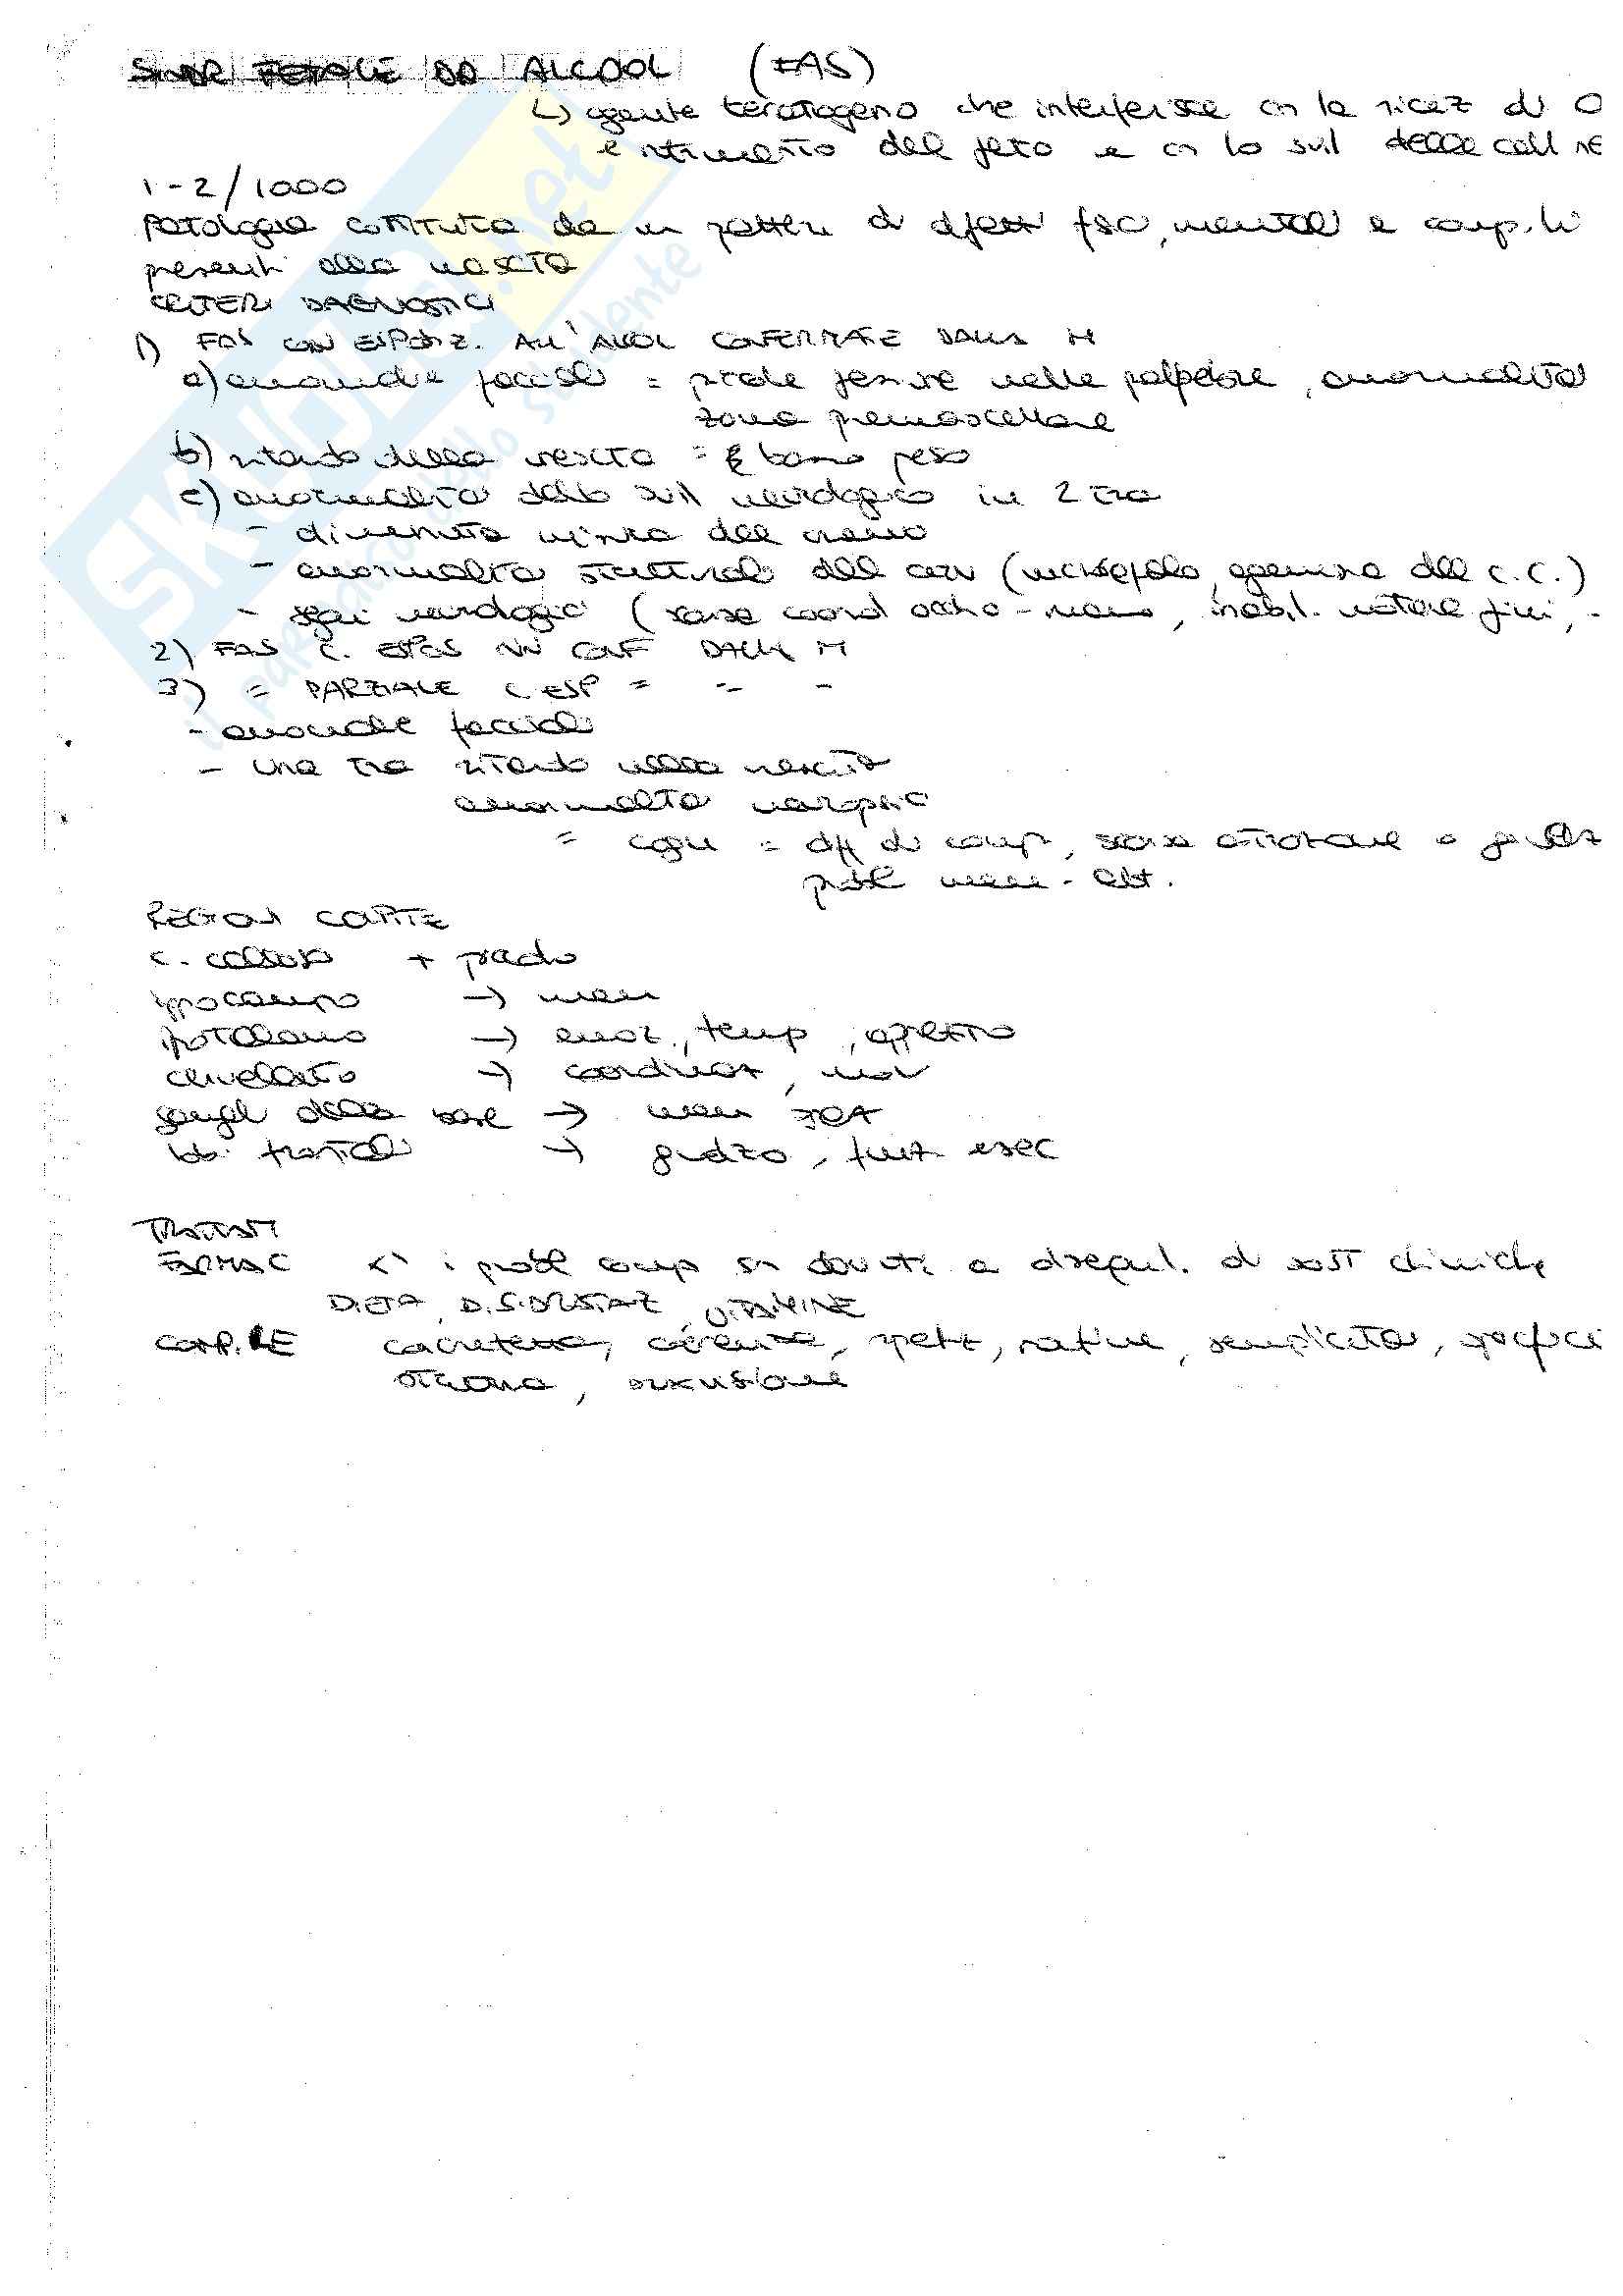 SINDR FETALE DA ALCOOL (FAS)
↳ agente teratogeno che interferisce cn la ricez di O
e ntrimento del feto e cn lo svil delle cell ne
1-2/1000
patologia costituita da un pattern di difetti fisici, mentali e comp.li
presenti alla nascita
CRITERI DIAGNOSTICI
1) FAS CON ESPOSIZ. ALL'ALCOL CONFERMATE DALLA M
a) anomalie facciali = piccole fessure nelle palpebre, anormalità
zona premascellare
b) ritardo della crescita = basso peso
c) anormalità dello svil neurologico in 2 tra
- diminuita del cranio
- anormalità strutturali del cerv (microcefalo, agenesia del c.c.)
- segni neurologici (scarsa coord occhio-mano, inabil. motorie fini,
2) FAS C. ESPOS NN CONF DALLA M
3) = PARZIALE C ESP = = -
- anomalie facciali
- una tra ritardo nella crescita
anormalità
= cogn = diff di comp, scarsa attenzione o
probl mem -
REGIONI COLPITE
c. calloso +
ippocampo → mem
ipotalamo → emoz., temp, appetito
cervelletto → coordinaz, mov
gangli della base → mem
lobi frontali → giudizio, funz esec
TRATTAM
FARMAC x i probl comp sn dovuti a disequil. di sost chimiche
DIETA, DISIDRATAZ, VITAMINE
COMP.LE concretezza, coerenza, ripetiz, routine, semplicità, specfici
, supervisione
SKUOLA.net
il paradiso dello studente